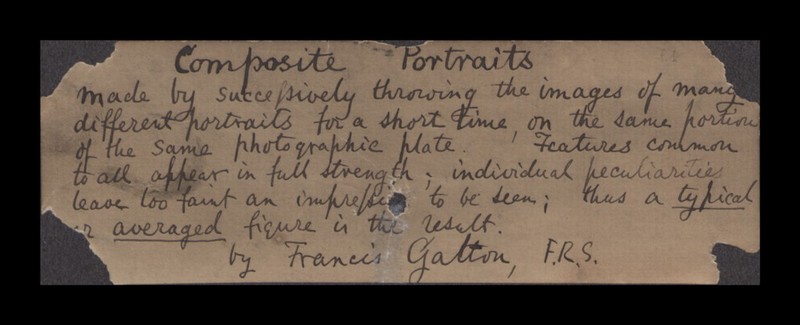 Composite Portraits
made by succeſsively throwing the images of many
different portraits for a short time, on the same portion
of the same photographic plate. Features common
to all appear in full strength; individual peculiarities
leave too faint an impreſsion to be seen; thus a typical
or averaged figure is the result.
by Francis Galton, F.R.S.